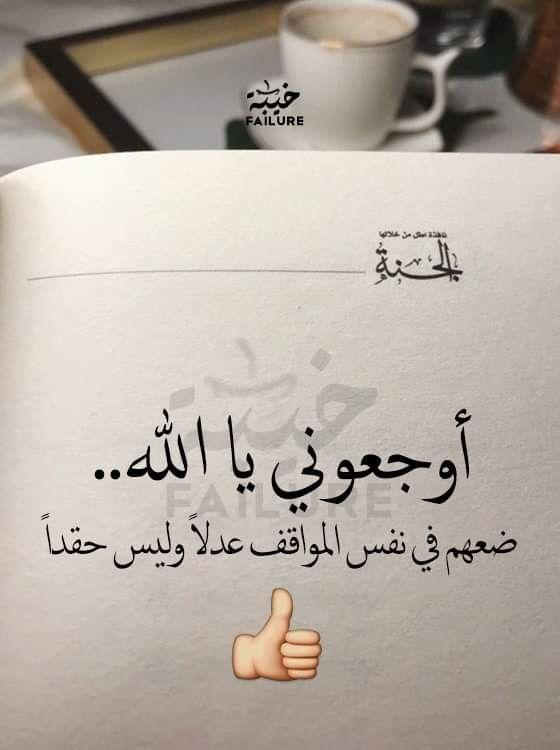 خيبة
FAILURE
نافذة اطل من خلالها
الجنة
خيبة
أوجعوني يا الله..
FAILURE
ضعهم في نفس المواقف عدلاً وليس حقداً